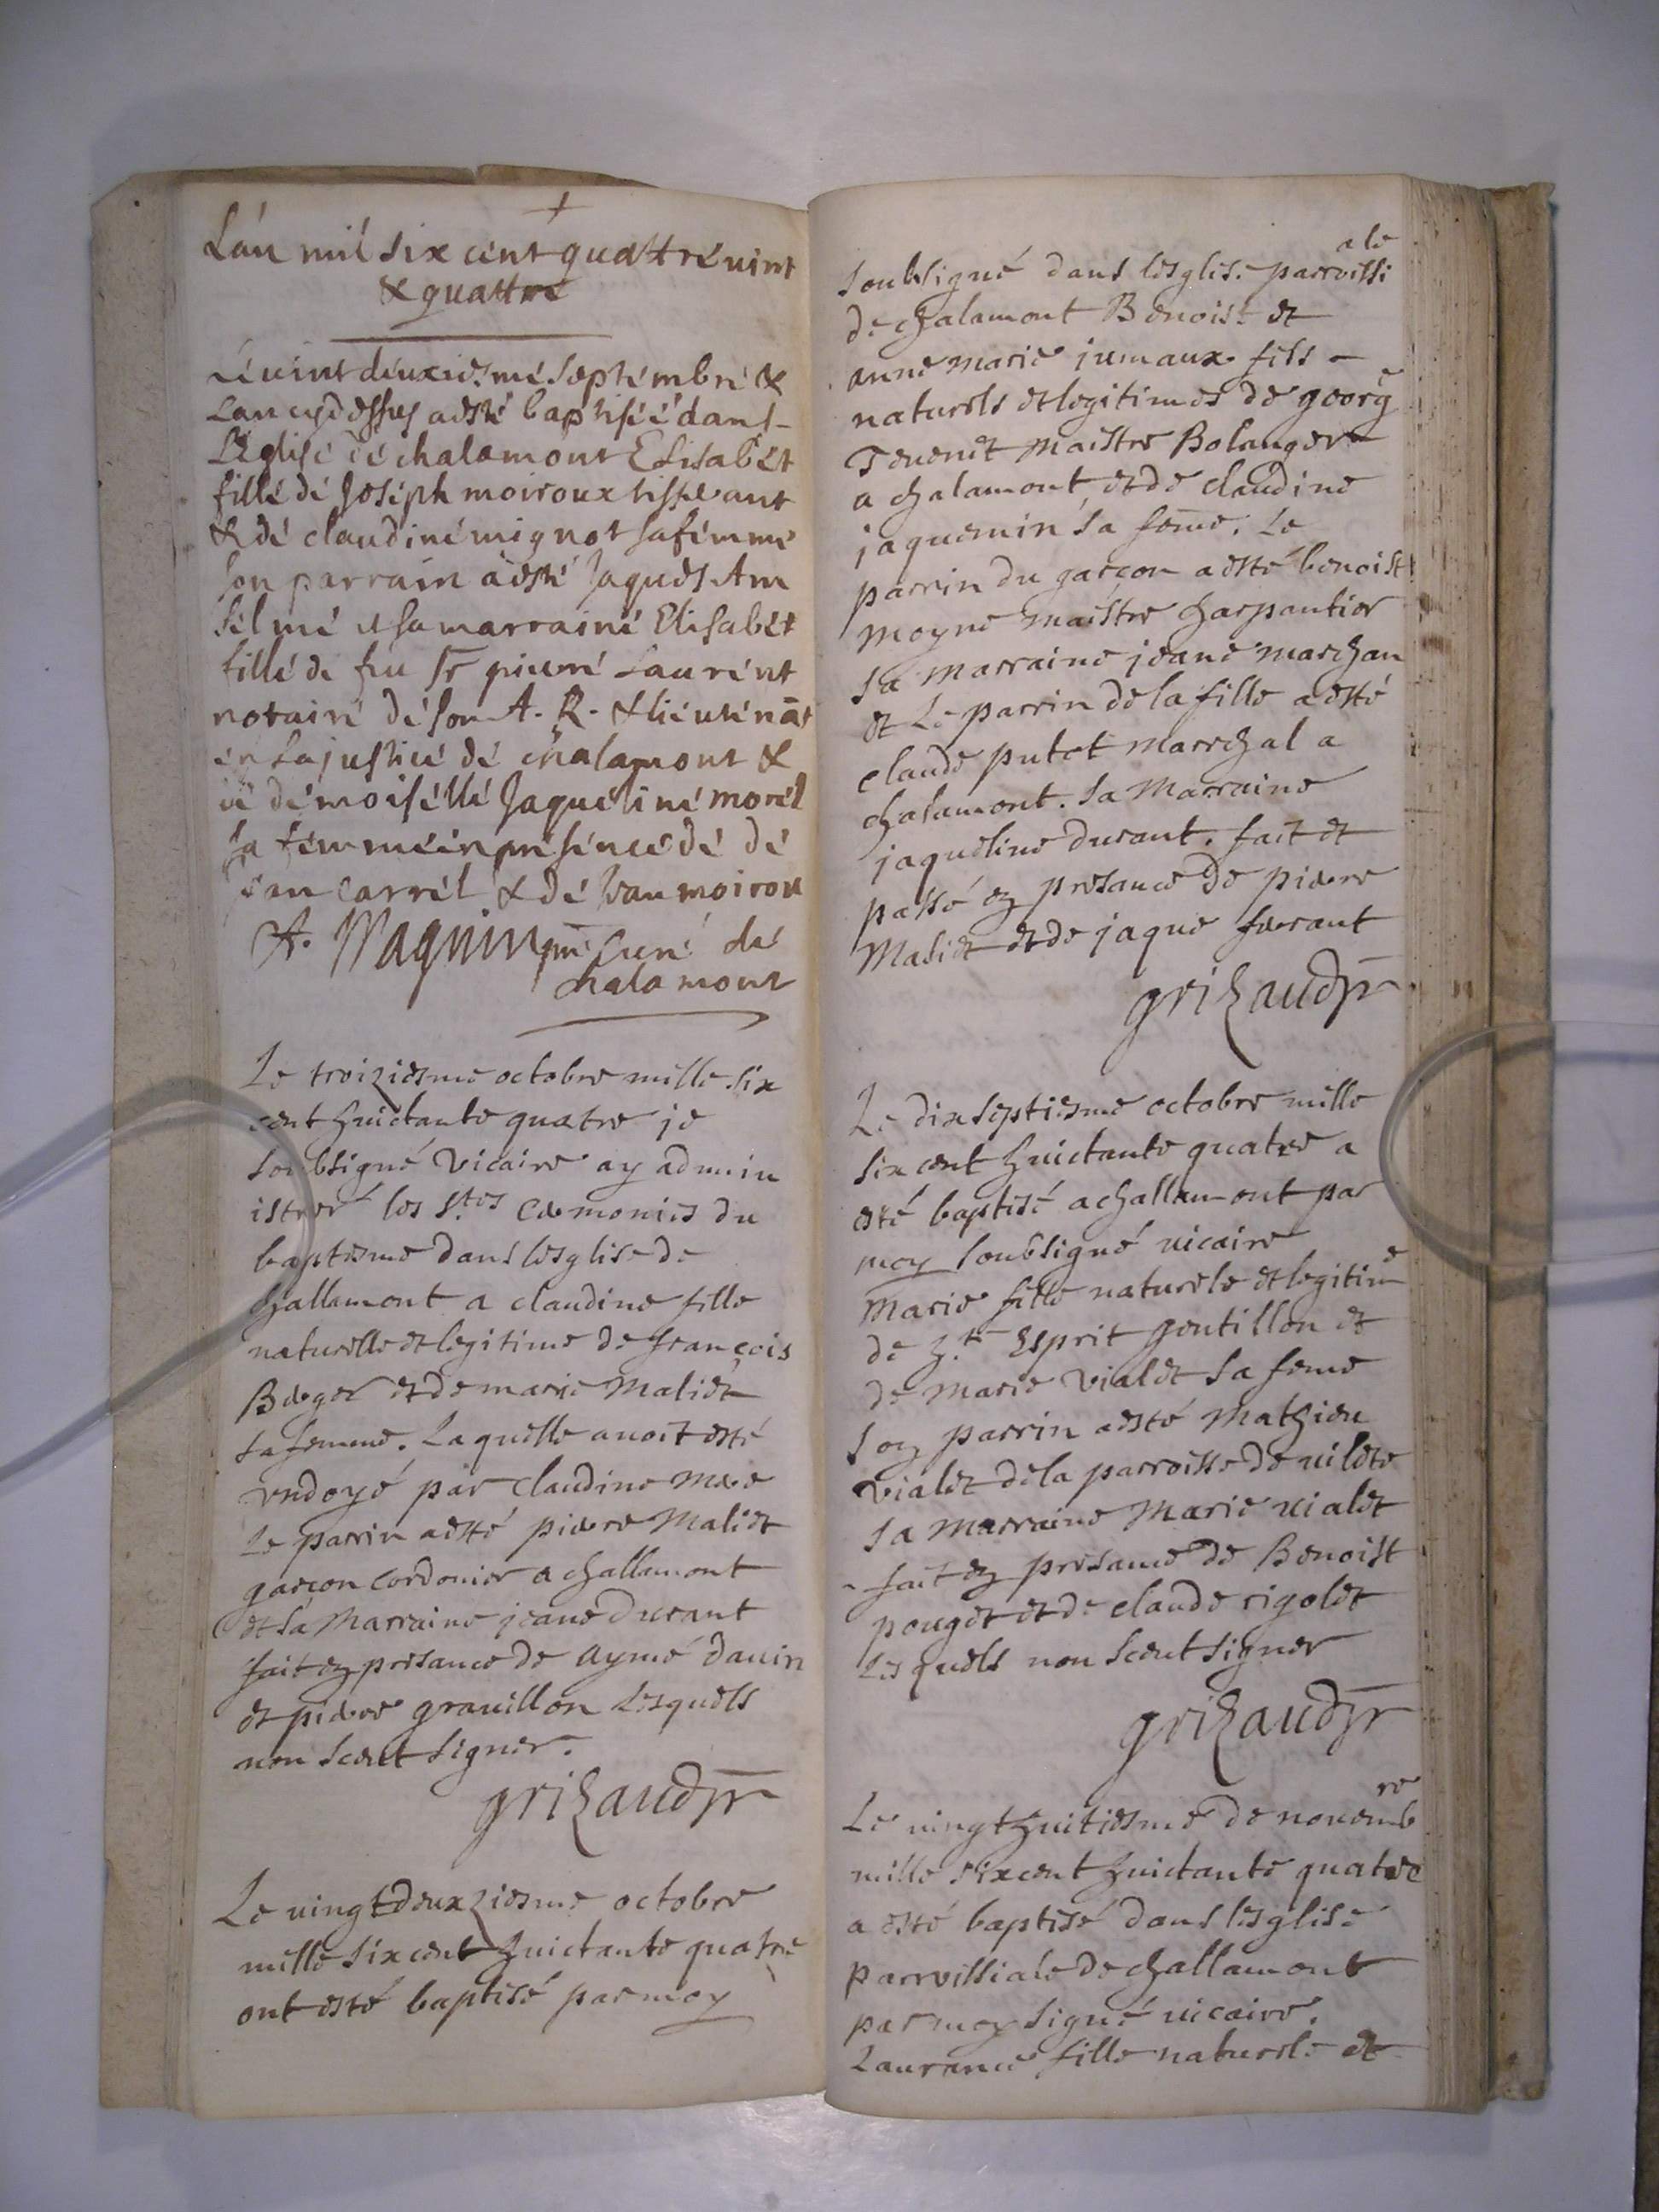 +
Lán mil six cént quattré vint
& quattré
Lé vint déuxiesmé séptémbré &
Lan cydessus aesté baptiséé dans
L'Eglisé dé chalamont Elisabét
fillé dé Joséph moiroux tisserant
& dé claudiné mignot sa fémmé
son parrain a esté Jaques Am
sélmé & sa marrainé Elisabét
fillé dé feu Sr pierré Laurént
notairé dé son A. R. & liéuténāt
én la justicé dé chalamont &
dé démoiséllé Jaquéliné morél
sa fémmé én présencé dé dé
Jean Carrél & dé Jean moirou
A. Maquin pr̄e Curé dé
chalamont
Le troiziesme octobre mille six
cent huictante quatre je
soubsigné vicaire ay admin
istreré les Stes Ceremonies du
baptesme dans lesglise de
challamont a claudine fille
naturelle et legitime de françois
Berger et de marie Maliet
sa femme. Laquelle avoit esté
vndoyé par Claudine Mere
Le parrin a esté pierre Maliet
garçon Cordonier a challamont
et sa Marraine jeane durant
fait ez presance de aymé davin
et pierre gravillon Lesquels
non sceut signer.
grizaud pr̄
Le vingtdeuxziesme octobre
mille six cent huictante quatre
ont esté baptisé par moy
ale
soubsigné dans lesglise parroissi
de chalamont Benoist et
anne marie jumaux fils -
naturels et legitimes de georg e
Tevenet Maistre Bolanger
a chalamont, et de claudine
jaquemin sa fem̄e. Le
parrin du garçon a esté benoist
moyne maistre charpantier
sa marraine jeane marchan
et Le parrin de la fille a esté
claude putet mareschal a
chalamont. sa Marraine
jaqueline durant. fait et
passé ez presance de pierre
Maliet et de jaque ferrant
grizaud pr̄
Le dixseptiesme octobre mille
six cent huictante quatre a
esté baptisé a challamont par
moy soubsigné vicaire
Marie fille naturele et legitim e
de h.te Esprit gentillon et
de Marie vialet sa feme
soz parrin a esté Mathieu
vialet de la parroisse de vilete
sa Marraine Marie vialet
fait ez presance de Benoist
pouget et de claude rigolet
Lesquels non sceut signer
grizaud pr̄
re
Le vingthuitiesme de novemb
mille sixcent huictante quatre
a esté baptisé dans lesglise
parroissiale de challamont
par moy signé vicaire.
Laurance fille naturele et